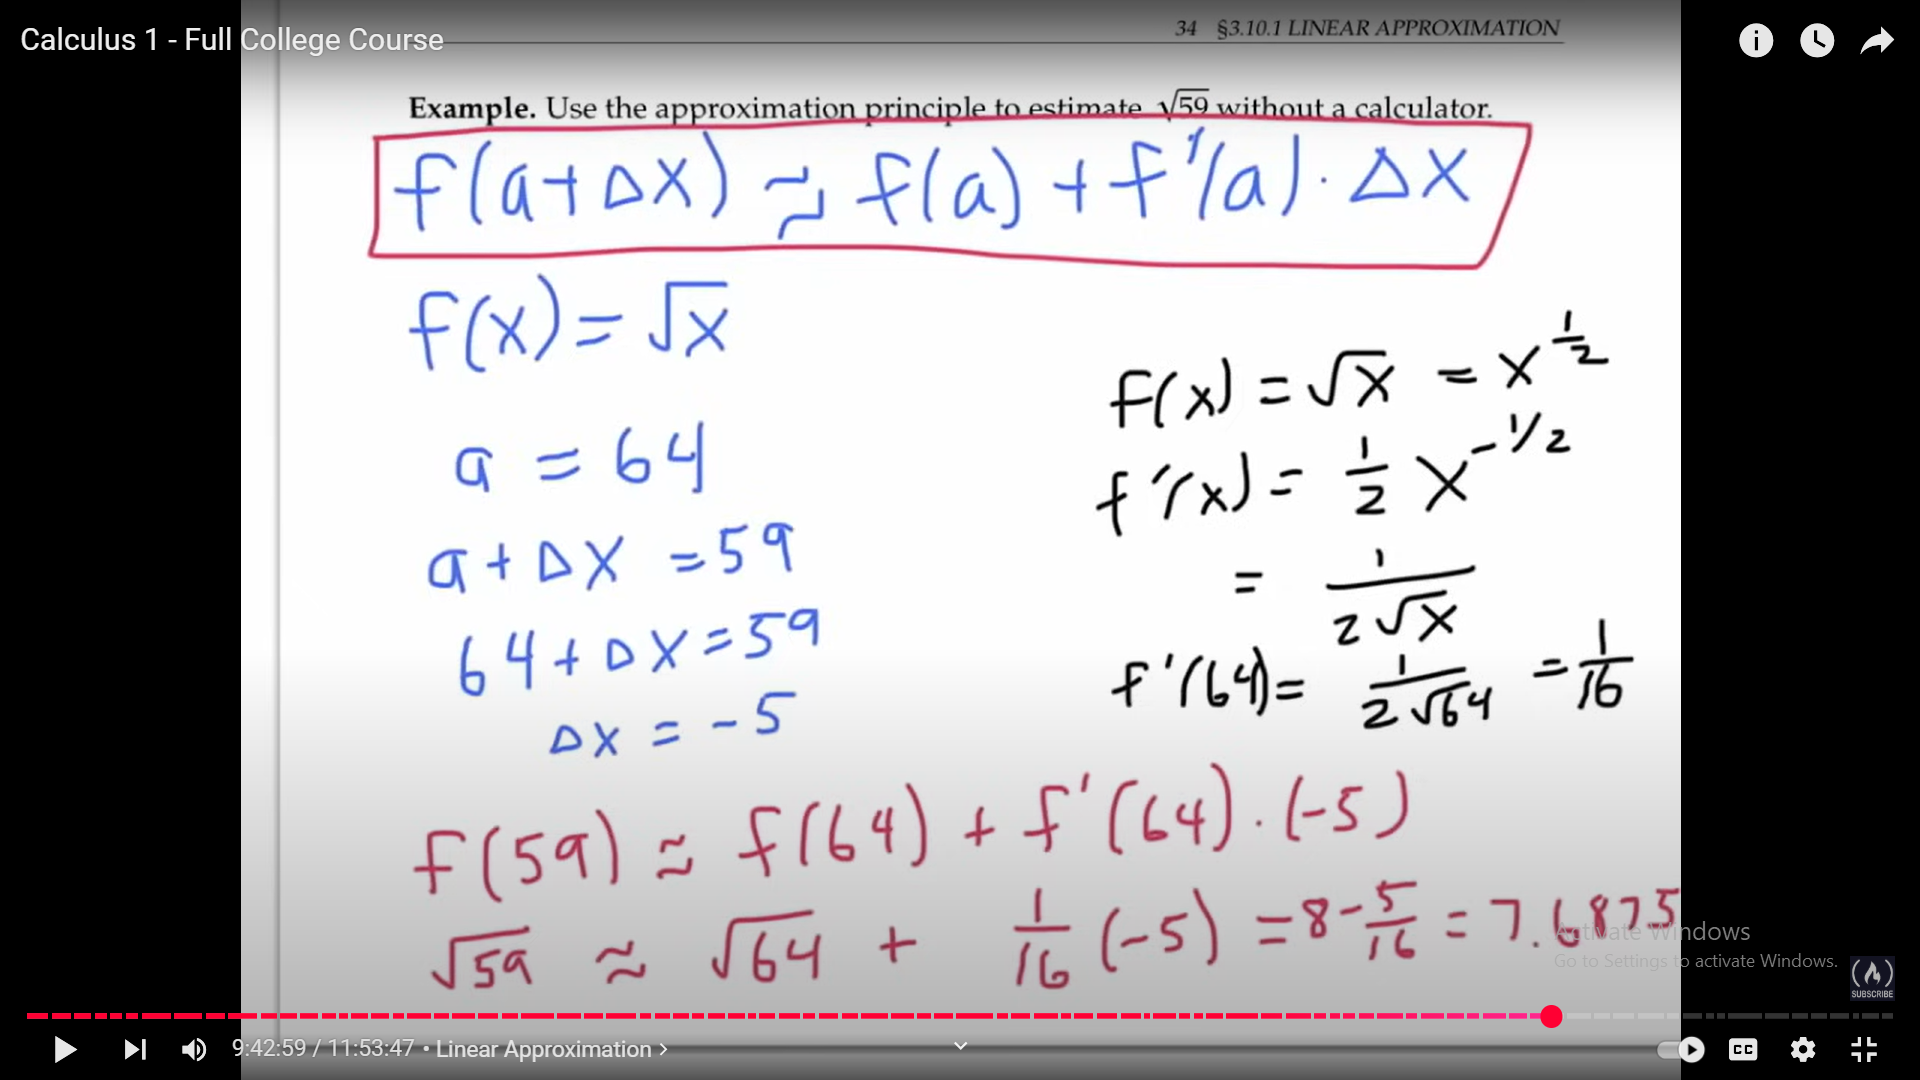 Calculus 1 - Full College Course
34 §3.10.1 LINEAR APPROXIMATION
Example. Use the approximation principle to estimate √59 without a calculator.
f(a+Δx) ≈ f(a) + f'(a) · Δx
f(x) = √x
a = 64
a + Δx = 59
64 + Δx = 59
Δx = -5
f(x) = √x = x^1/2
f'(x) = 1/2 x^-1/2
= 1/2√x
f'(64) = 1/2√64 = 1/16
f(59) ≈ f(64) + f'(64) · (-5)
√59 ≈ √64 + 1/16 (-5) = 8 - 5/16 = 7.6875
Activate Windows
Go to Settings to activate Windows.
SUBSCRIBE
9:42:59 / 11:53:47 • Linear Approximation >
CC